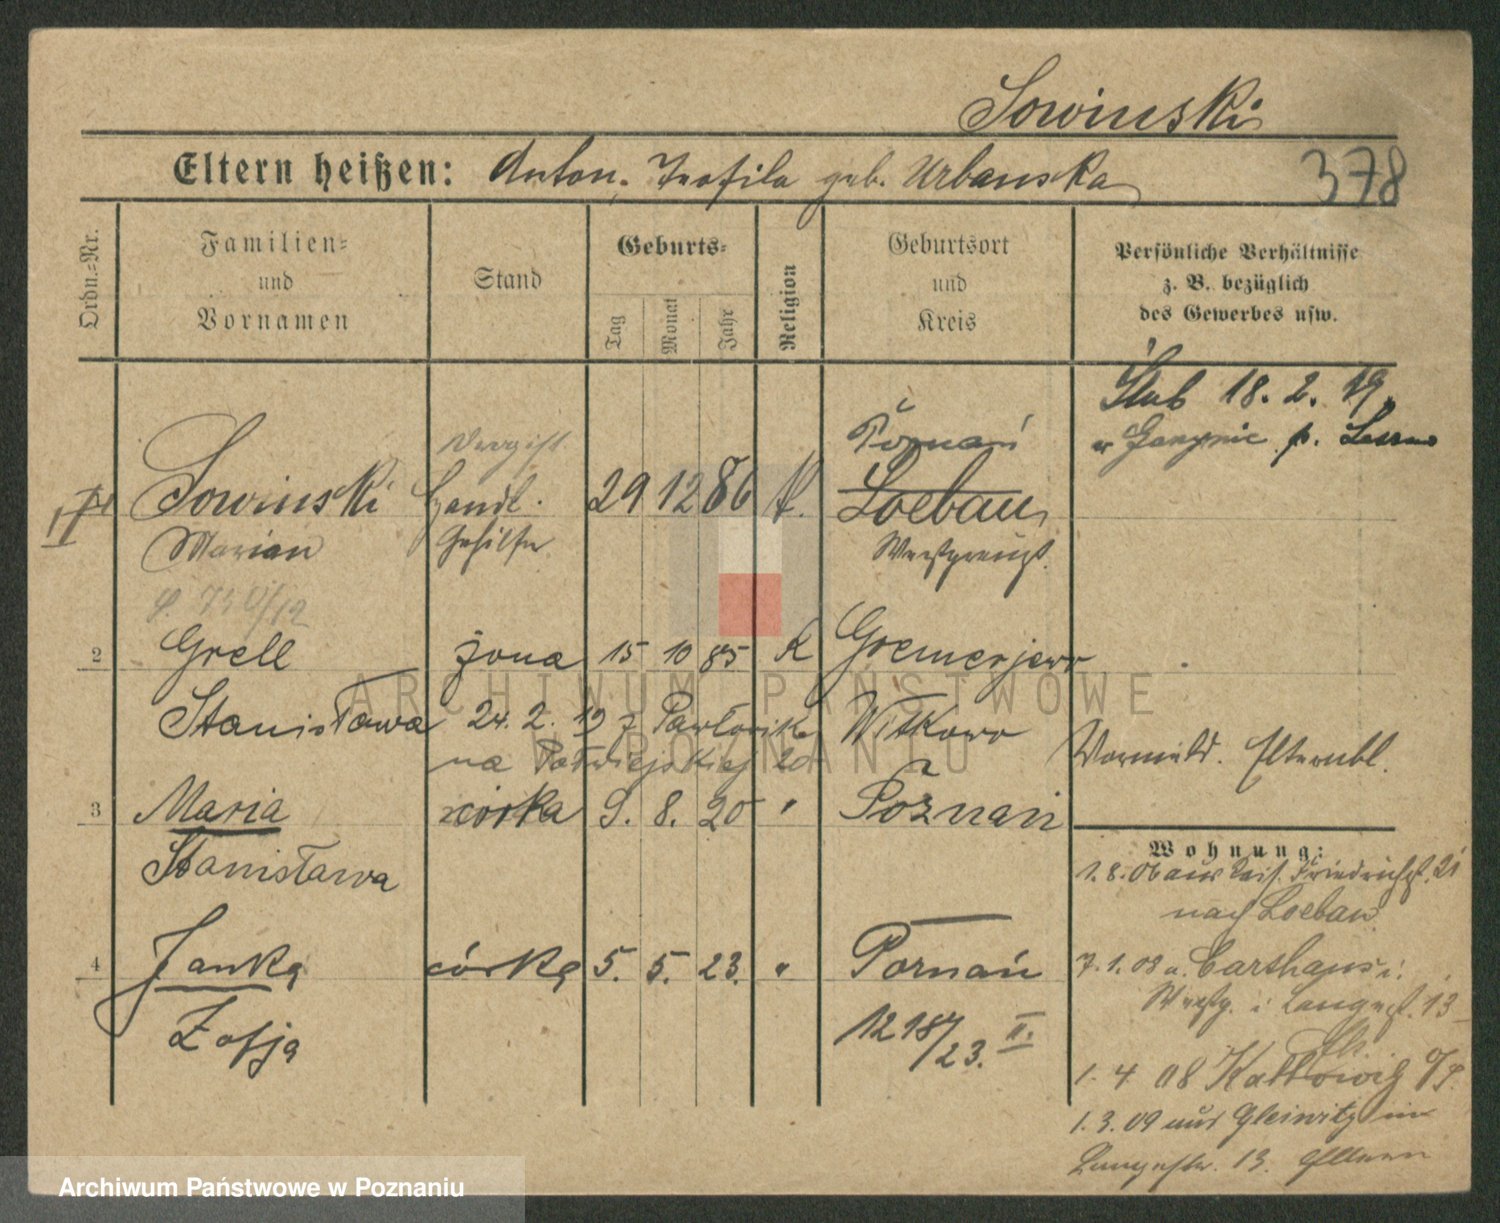 Sowinski
Eltern heißen: Anton, Teofila geb. Urbanska
378
Ordn.-Nr.
Familien-
und
Vornamen
Stand
Geburts-
Tag
Monat
Jahr
Religion
Geburtsort
und
Kreis
Persönliche Verhältnisse
z. B. bezüglich
des Gewerbes usw.
Ślub 18. 2. 19.
Poznań
Sowinski Handl. 29 12 86 K. Loebau
Marian Gehilfe Westpreuß.
2 Grell żona 15 10 85 K
Stanisława 24. 2. 19 z Witkowo
Vormeld. Elternbl.
3 Maria córka 9. 8. 20 " Poznań
Stanisława
Wohnung:
1.8.06 aus Friedrichst. 21
nach Loebau
4 Janka córka 5. 5. 23. " Poznań
Zofja
12187/23. II.
7.1.08 a. Carthaus i.
Westp. i Langest. 13
1. 4 08 Kattowitz O/S.
1.3.09 aus Gleiwitz in
Langestr. 13. Eltern
ARCHIWUM PAŃSTWOWE
W POZNANIU
Archiwum Państwowe w Poznaniu